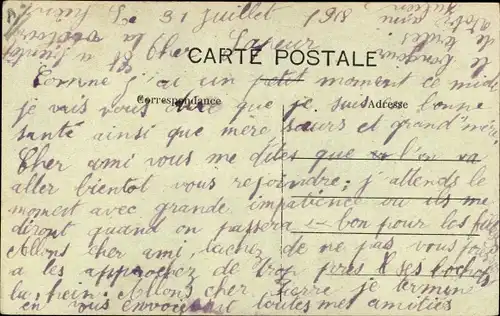 31 juillet 1918
Cher
CARTE POSTALE
Comme j'ai un petit moment ce midi
Correspondance
Adresse
je vais vous dire que je suis bonne
santé ainsi que mère sœurs et grand'mè
Cher ami vous me dites que l'on va
aller bientot vous rejoindre; j'attends le
moment avec grande impatience ou ils me
diront quand on passera bon pour les
Allons cher ami, tachez de ne pas vous
a les approchez de trop près ses boches
la, hein. Allons cher Pierre je termine
en vous envoyant toutes mes amitiés